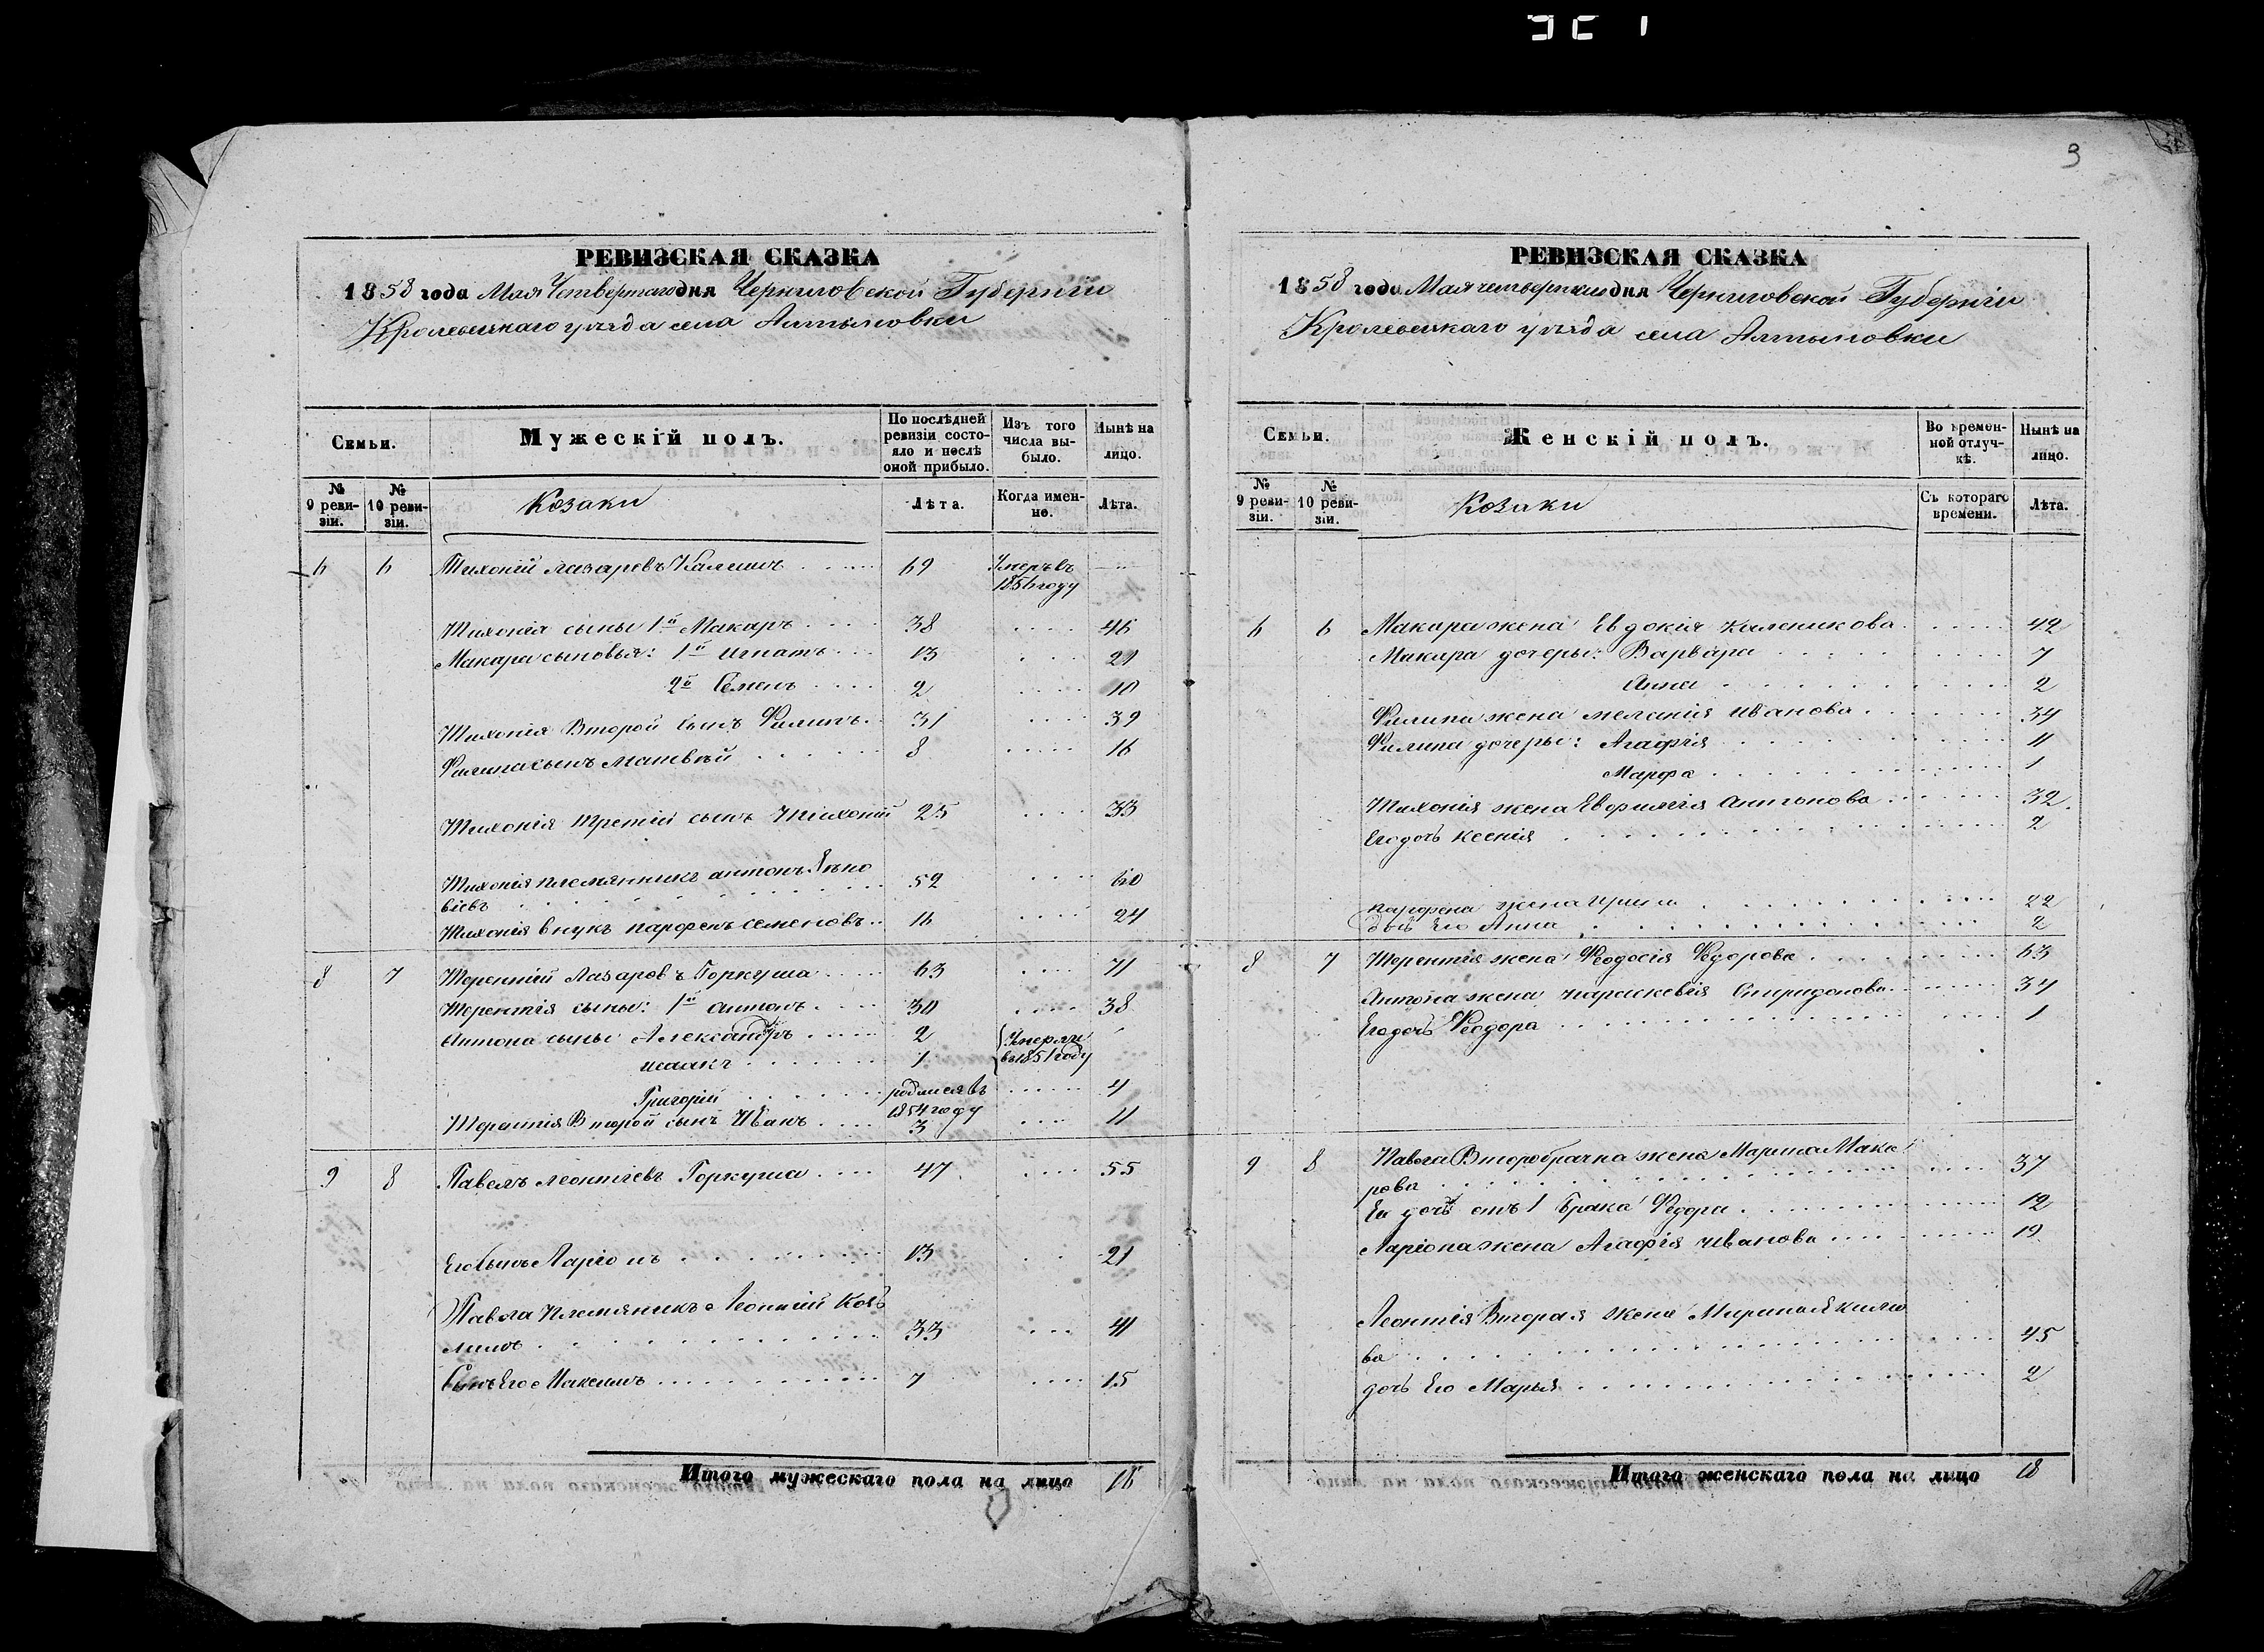 3
РЕВИЗСКАЯ СКАЗКА
1858 года Мая Четвертаго дня Черниговской Губернiи
Кролевецкаго уѣзда села Алтыновки
Семьи.
Мужескiй полъ.
По послѣдней ревизiи состояло и послѣ оной прибыло.
Изъ того числа выбыло.
Нынѣ на лицо.
№ 9 ревизiи.
№ 10 ревизiи.
Козаки
Лѣта.
Когда именно.
Лѣта.
6 6 Тихонiй Лазаревъ 69 Умеръ въ
1856 году
Тихонiя сыны 1й Макаръ 38 46
Макара сыновья: 1й Игнатъ 13 21
2й Семенъ 2 10
Тихонiя Второй сынъ Филипъ 31 39
Филипа сынъ Матвѣй 8 16
Тихонiя третiй сынъ Тихонiй 25 33
Тихонiя племянникъ антонъ
52 60
Тихонiя внукъ парфенъ семеновъ 16 24
8 7 Терентiй Лазаревъ Горкуша 63 71
Терентiя сыны: 1й антонъ 30 38
Антона сыны Александръ 2 Умерли
исаакъ 1 въ 1851 году
Григорiй родился въ 4
1854 году
Терентiя Второй сынъ Иванъ 3 11
9 8 Павелъ леонтiевъ Горкуша 47 55
Его сынъ Ларiонъ 13 21
Павла Племяникъ Леонтiй
33 41
Сынъ Его Максимъ 7 15
Итого мужескаго пола на лицо 16
РЕВИЗСКАЯ СКАЗКА
1858 года Мая четвертаго дня Черниговской Губернiи
Кролевецкаго уѣзда села Алтыновки
Семьи.
Женскiй полъ.
Во временной отлучкѣ.
Нынѣ на лицо.
№ 9 ревизiи.
№ 10 ревизiи.
Козаки
Съ котораго времени.
Лѣта.
6 6 Макара жена Евдокiя каленикова 42
Макара дочеры: Варвара 7
Анна 2
Филипа жена меланiя иванова 34
Филипа дочеры: Агафiя 11
Марфа 1
Тихонiя жена Евфимiя антонова 32
Его дочь ксенiя 2
парфена жена ирина 22
дочь его Анна 2
8 7 Терентiя жена Феодосiя Федорова 63
Антона жена параскевiя Спиридонова 34
Его дочь Феодора 1
9 8 Павла Второбрачна жена Марина Мака
рова 37
Ея дочь отъ 1 брака Федора 12
Ларiона жена Агафiя иванова 19
Леонтiя Вторая жена
ва 45
дочь Его Марья 2
Итого женскаго пола на лицо 18